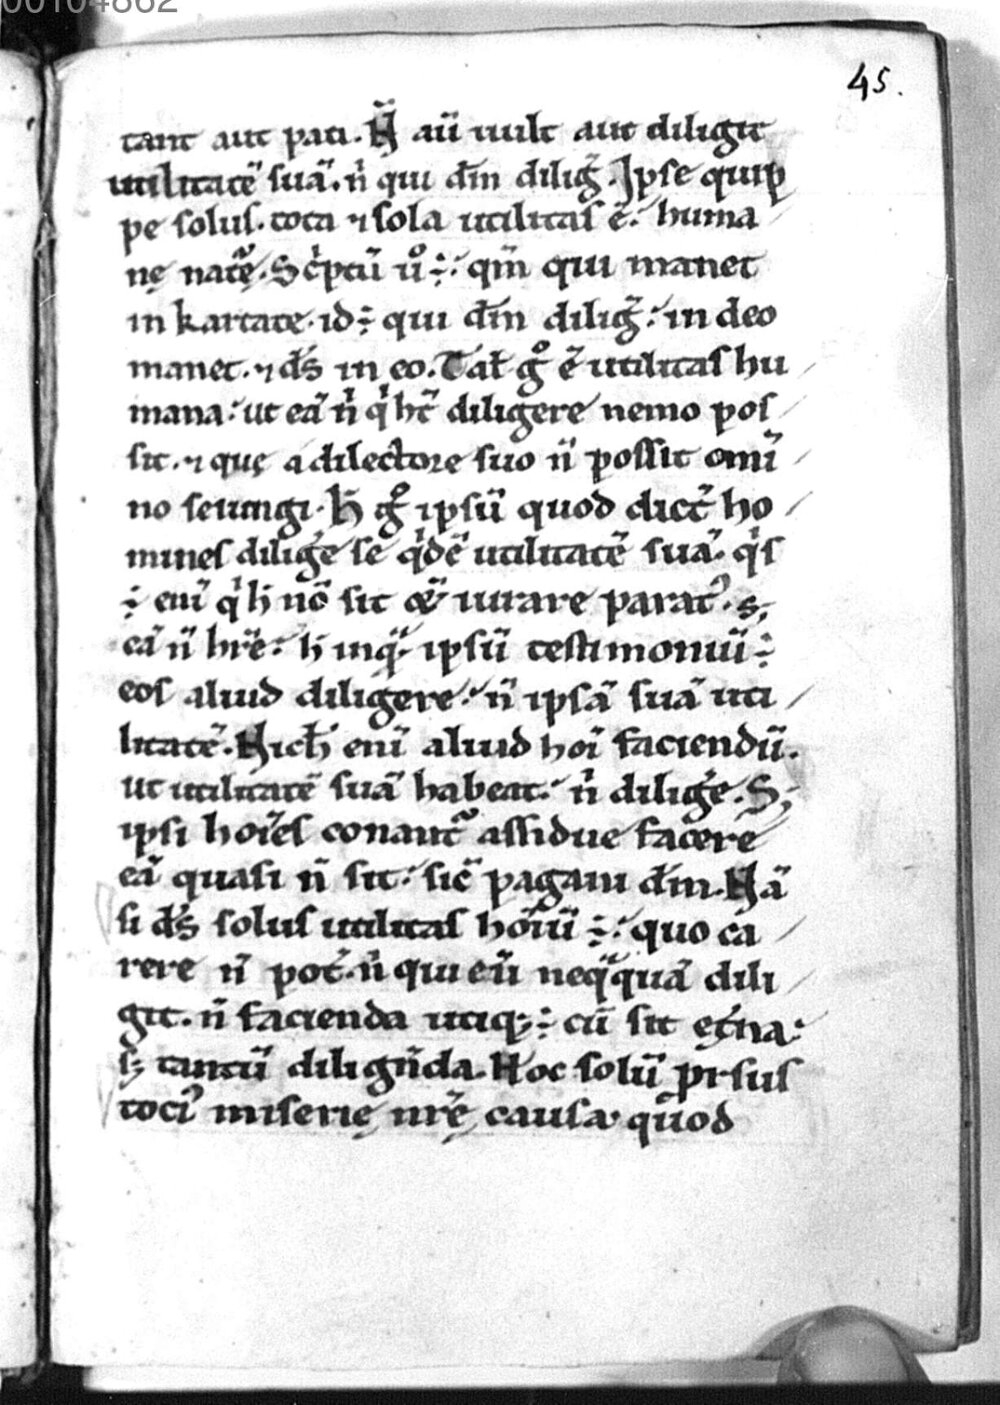 00104862
45.
tant aut pati. N̄ aū uult aut diligit
utilitatē suā. ñ qui dm̄ dilig̃. Ipse quip
pe solus. tota ⁊ sola utilitas ē. huma
nę natę̃. Sc̓ptū ů ÷. qm̄ qui manet
in karitate. id÷ qui dm̄ dilig̃. in deo
manet. ⁊ ds̄ in eo. Tał g̊ ē utilitas hu
mana. ut eā ñ qͥ hт̄ diligere nemo pos
sit. ⁊ quę a dilectore suo n̄ possit omī
no seiungi. H̄ g̊ ipsū quod dicт̃ ho
mines dilig̃e se qͥdē utilitatē suā. qͥs
÷ enī qͥ ħ nō sit iurare parat᾽. s;
eā n̄ hr̄e. ħ inqͣ ipsū testimoniū ÷
eos aliud diligere. n̄ ipsā suā uti
litatē. Nicħ enī aliud hoī faciendū.
ut utilitatē suā habeat. ñ dilig̃e. S;
ipsi hoīes conant᾽ assidue facere
eā quasi n̄ sit. sic̄ pagani dm̄. Nā
si ds̄ solus utilitas hoīū ÷. quo ca
rere n̄ poт̃. ñ qui eū neqͣquā dili
git. n̄ facienda utiq; ÷ cū sit et̃na.
s; tantū dilign̄da. Hoc solū prsus
toci᾽ miserię nr̄ę causa quod